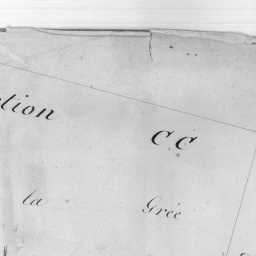 ction
C.C
la Grée